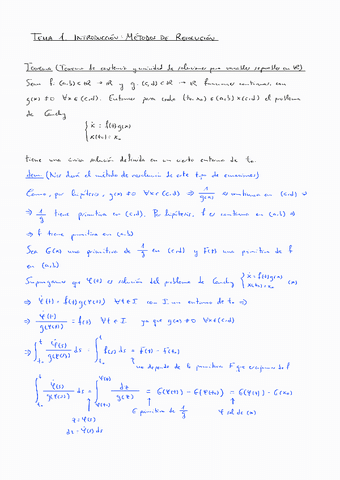 TEMA 1. INTRODUCCIÓN. MÉTODOS DE RESOLUCIÓN
Teorema (Teorema de existencia y unicidad de soluciones para variables separables en ℝ)
Sean f: (a,b) ⊂ ℝ → ℝ y g: (c,d) ⊂ ℝ → ℝ funciones continuas, con
g(x) ≠ 0 ∀x ∈ (c,d). Entonces para cada (t₀, x₀) ∈ (a,b) × (c,d) el problema
de Cauchy
{ ẋ = f(t)g(x)
x(t₀) = x₀
tiene una única solución definida en un cierto entorno de t₀.
dem (Nos dará el método de resolución de este tipo de ecuaciones)
Como, por hipótesis, g(x) ≠ 0 ∀x ∈ (c,d) ⇒ 1/g(x) es continua en (c,d) ⇒
⇒ 1/g tiene primitiva en (c,d). Por hipótesis, f es continua en (a,b) ⇒
⇒ f tiene primitiva en (a,b)
Sea G(x) una primitiva de 1/g en (c,d) y F(t) una primitiva de f
en (a,b)
Supongamos que φ(t) es solución del problema de Cauchy { ẋ = f(t)g(x)
x(t₀) = x₀ (*)
⇒ φ̇(t) = f(t)g(φ(t)) ∀t ∈ I con I un entorno de t₀ ⇒
⇒ φ̇(t)/g(φ(t)) = f(t) ∀t ∈ I ya que g(x) ≠ 0 ∀x ∈ (c,d)
⇒ ∫_{t₀}^{t} φ̇(s)/g(φ(s)) ds = ∫_{t₀}^{t} f(s) ds = F(t) - F(t₀)
no depende de la primitiva F que escojamos de f
∫_{t₀}^{t} φ̇(s)/g(φ(s)) ds = ∫_{φ(t₀)}^{φ(t)} dz/g(z) = G(φ(t)) - G(φ(t₀)) = G(φ(t)) - G(x₀)
z = φ(s)
dz = φ̇(s) ds
G primitiva de 1/g
φ sol de (*)